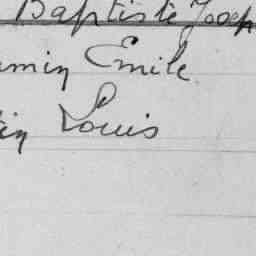 Baptiste Joseph
min Emile
in Louis